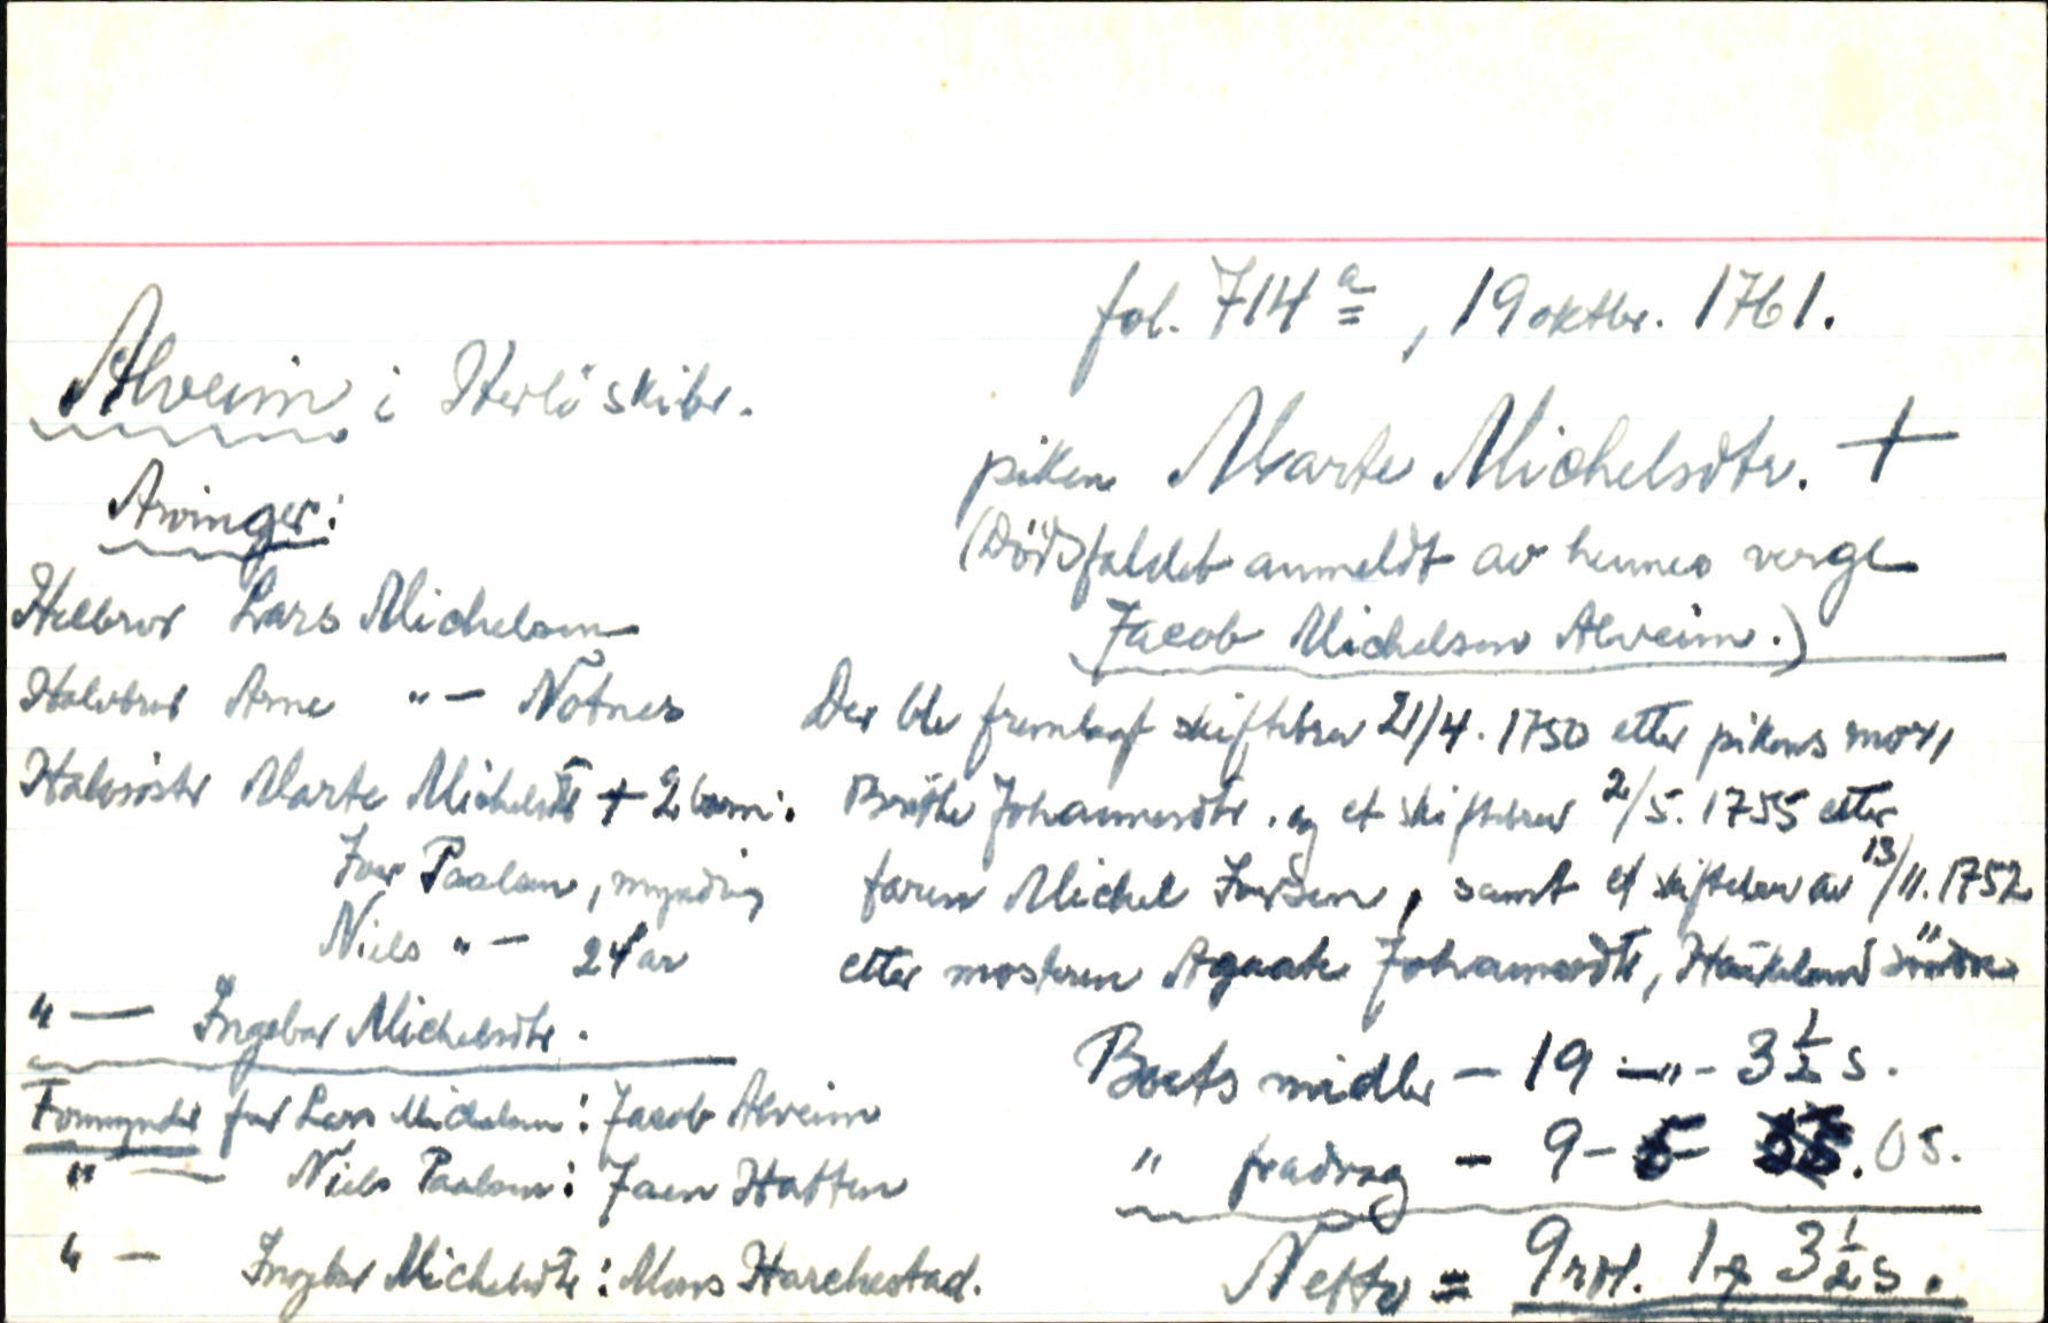 fol. 714 a, 19 oktbr. 1761.
Alveim i Herlö skibr.
piken Marte Michelsdtr. +
(Dödsfaldet anmeldt av hennes verge
Jacob Michelsen Alveim.)
Arvinger:
Helbror Lars Michelsen
Halvbror Arne "— Nötnes
Halvsöster Marte Michelsdtr + 2 barn:
Iver Paalsen, myndig
Niels "— 24 år
"— Ingebor Michelsdtr.
Formynder for Lars Michelsen: Jacob Alveim
"— Niels Paalsen: Joen Hatten
"— Ingebor Michelsdtr: Mons Harchestad.
Der ble fremlagt skiftebrev 21/4. 1750 etter pikens mor,
Brithe Johannesdtr. og et skiftebrev 2/5. 1755 etter
faren Michel Iversen, samt et skiftebrev av 13/11. 1752
etter mosteren Agaate Johannesdtr, Haukeland söndre
Boets midler — 19 —"— 3 1/2 s.
" fradrag — 9 — 5 — 0 s.
Netto = 9 rdl. 1 ƶ 3 1/2 s.